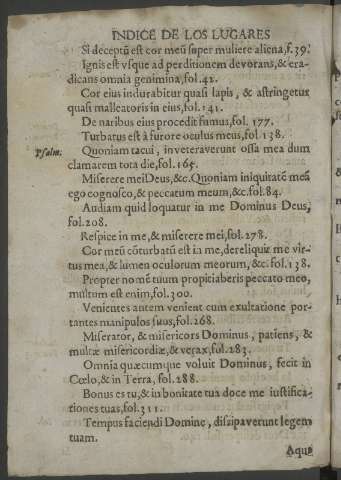 INDICE DE LOS LUGARES
Si deceptū est cor meū super muliere aliena, f.39.
Ignis est vsque ad perditionem devorans, & era-
dicans omnia genimina, fol.42.
Cor eius indurabitur quasi lapis, & astringetur
quasi malleatoris in eius, fol.141.
De naribus eius procedit fumus, fol. 177.
Turbatus est à furore oculus meus, fol.138.
Psalm.
Quoniam tacui, inveteraverunt ossa mea dum
clamarem tota die, fol.165.
Miserere mei Deus, &c. Quoniam iniquitatē meā
ego cognosco, & peccatum meum, &c. fol.84.
Audiam quid loquatur in me Dominus Deus,
fol.208.
Respice in me, & miserere mei, fol.278.
Cor meū cōturbatū est in me, dereliquit me vir-
tus mea, & lumen oculorum meorum, &c. fol.138.
Propter nomē tuum propitiaberis peccato meo,
multum est enim, fol.300.
Venientes autem venient cum exultatione por-
tantes manipulos suos, fol.268.
Miserator, & misericors Dominus, patiens, &
multæ misericordiæ, & verax, fol.283.
Omnia quæcumque voluit Dominus, fecit in
Cœlo, & in Terra, fol.288.
Bonus es tu, & in bonitate tua doce me iustifica-
tiones tuas, fol.311.
Tempus faciendi Domine, dissipaverunt legem
tuam.
Aquæ